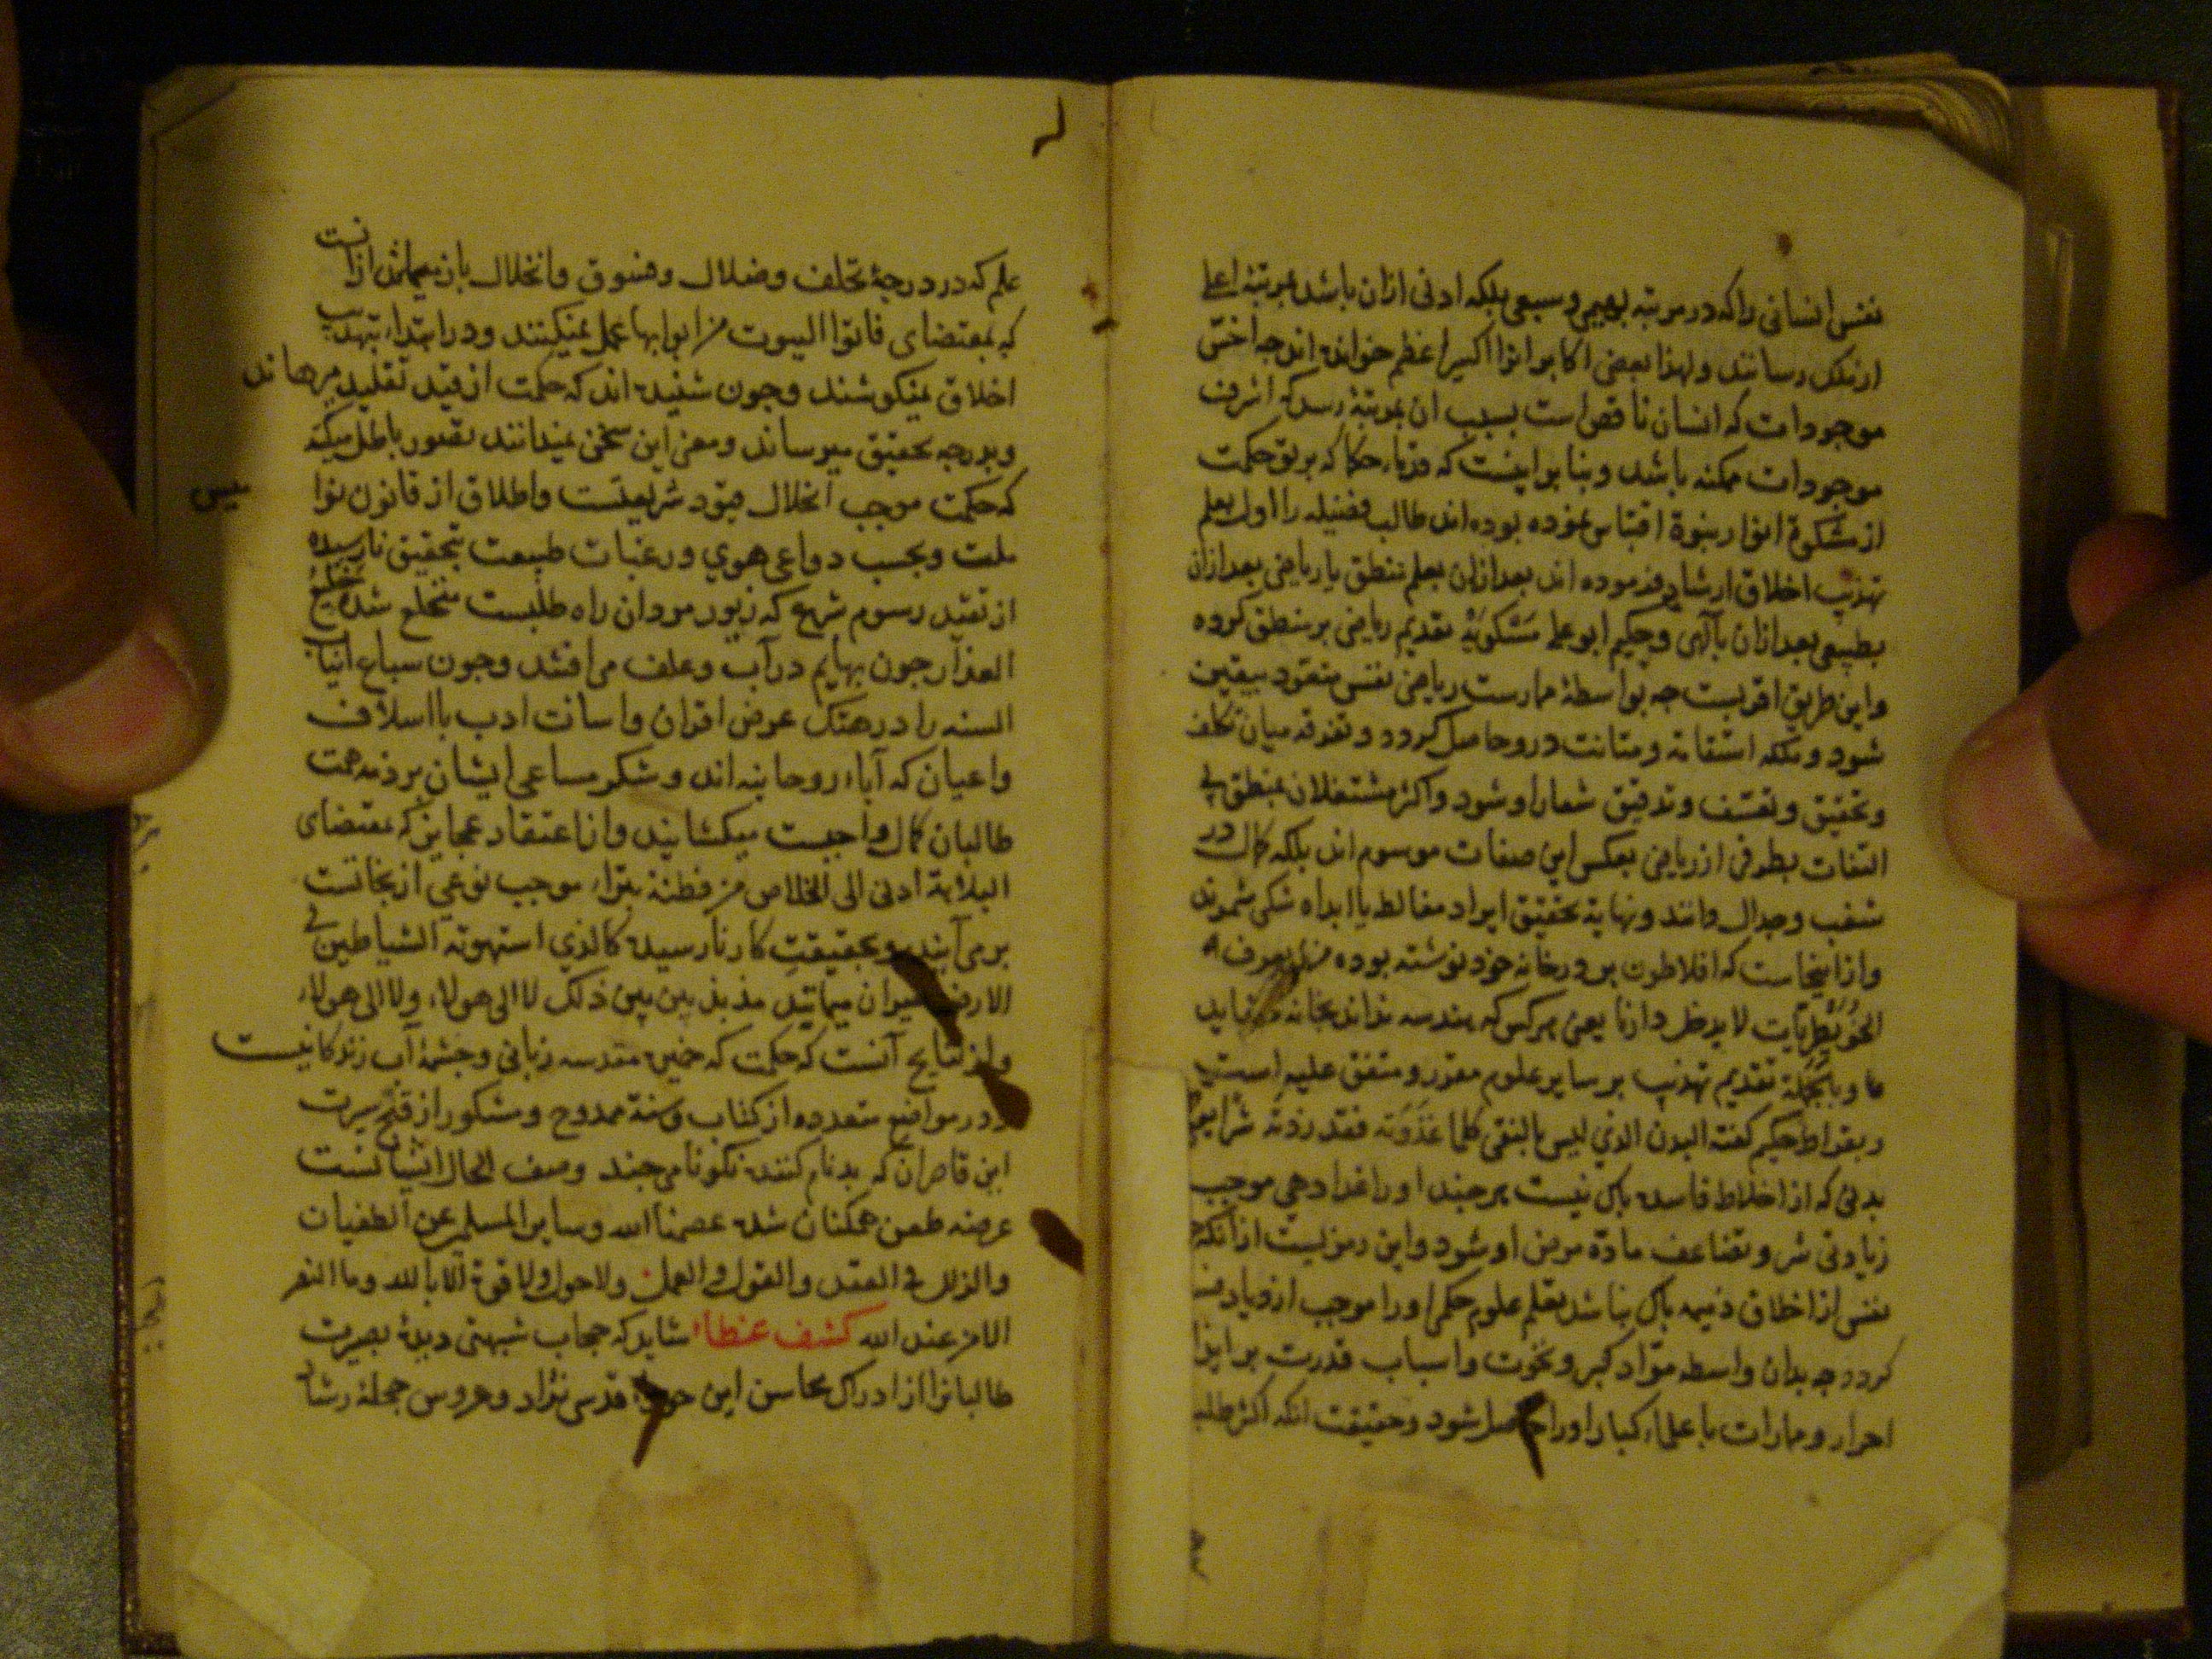 نفس انسانی را که در مرتبه بهیمی و سبعی بلکه ادنی ازان باشد بمرتبه اعلی
از ملک رسانند ولهذا بعضی اکابر انرا اکسیر اعظم خوانده اند چه اخس
موجودات که انسان ناقص است بسبب ان بمرتبۀ رسد که اشرف
موجودات ممکنه باشد و بنا بر اینست که قدماء حکما که بر بوق حکمت
از مشکوة انوار نبوة اقتباس نموده بوده اند طالب فضیله را اول بعلم
تهذیب اخلاق ارشاد فرموده اند بعد ازان بعلم منطق یا ریاضی بعد ازان
بطبیعی بعد ازان بآلهی و حکیم ابو علی مسکویه تقدیم ریاضی بر منطق کرده
واین طریق اقربست چه بواسطۀ ممارست ریاضی نفس متعود بیقین
شود و ملکه استقامة و متانت درو حاصل کردد و تفرقه میان تکلف
و تحقیق و تعسف و تدقیق شعار او شود و اکثر مشتغلان بمنطق بی
التفات بطرفی از ریاضی بعکس این صفات موسوم اند بلکه کمال در
شغب و جدال دانند و نهایة تحقیق ایراد مغالطه یا ابداء شکی شمرند
وازاینجاست که افلاطون بر در خانه خود نوشته بوده من لم یعرف
لا یدخل دارنا یعنی هر کس که هندسه نداند بخانه در نیاید
ما و بالجملة تقدیم تهذیب بر سایر علوم مقرر و متفق علیه است
و بقراط حکیم کفته البدن الذی لیس بالنقی کلما غذوته فقد زدته شرا یعنی
بدنی که از اخلاط فاسده پاک نیست هر چند او را غذا دهی موجب
زیادتی شر و تضاعف مادّه مرض او شود و این رمزیست از آنکه
نفس از اخلاق ذمیمه پاک نباشد تعلم علوم حکمی او را موجب ازدیاد
کردد چه بدان واسطه مواد کبر و نخوت و اسباب قدرت بر ایذا
احرار و مماراة با علماء کبار او را حاصل شود و حقیقت انکه اکثر طلبه
علم که در درجۀ تخلف و ضلال و فسوق و انحلال باز میمانند ازانست
که بمقتضای فاتوا البیوت من ابوابها عمل نمیکنند و در ابتدا بتهذیب
اخلاق نمیکوشند و چون شنیده اند که حکمت از قید تقلید میرهاند
و بدرجه تحقیق میرساند و معنی این سخن نمیدانند تصور باطل میکنند
که حکمت موجب انحلال قیود شریعتست و اطلاق از قانون نوامیس
ملت و بحسب دواعی هوی و رغبات طبیعت بتحقیق نارسیده
از تقید رسوم شرع که زیور مردان راه طلبست منخلع شده خلیع
العذار چون بهایم در آب و علف می افتند و چون سباع انیاب
السنه را در هتک عرض اقران و اسائت ادب با اسلاف
واعیان که آباء روحانیه اند و شکر مساعی ایشان بر ذمه همت
طالبان کمال واجبست میکشایند و از اعتقاد عجایز که بمقتضای
البلاهة ادنی الی الخلاص من فطنة بتراء موجب نوعی از نجاتست
بر می آیند و بحقیقت کار نارسیده کالذی استهوته الشیاطین فی
الارض حیران میمانند مذبذبین بین ذلک لا الی هولاء ولا الی هولاء
و از نتایج آنست که حکمت که خمیره مقدسه ربانی و چشمۀ آب زندکانیست
و در مواضع متعدده از کتاب و سنة ممدوح و مشکور از قبح سیرت
این قاصران که بدنام کننده نکونامی چند وصف الحال ایشانست
عرضه طعن همکنان شده عصمنا الله وسایر المسلمین عن الطغیان
والزلل فی العقد والقول والعمل ولا حول ولا قوة الا بالله وما النصر
الا من عند الله کشف غطاء شاید که حجاب شبهتی دیدۀ بصیرت
طالبانرا از ادراک محاسن این حوراء قدسی نژاد و عروس حجلۀ رشاد